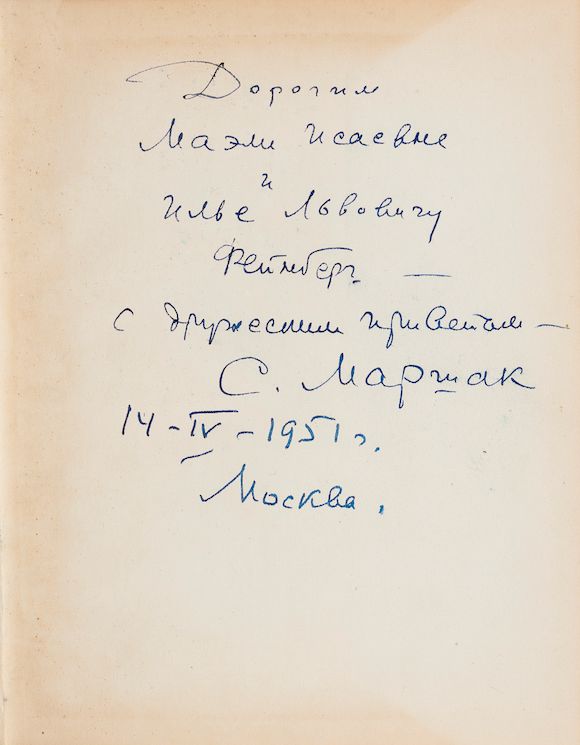 Дорогим
Маэли Исаевне
и
Илье Львовичу
Фейнберг —
с дружеским приветом —
С. Маршак
14-IV-1951 г.
Москва.